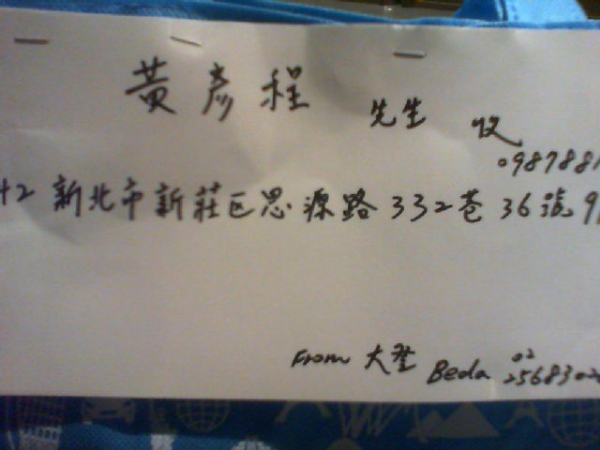 黃彥程 先生 收
098788
42 新北市新莊區思源路332巷36號9
From 大堃 Beda 02
2568302